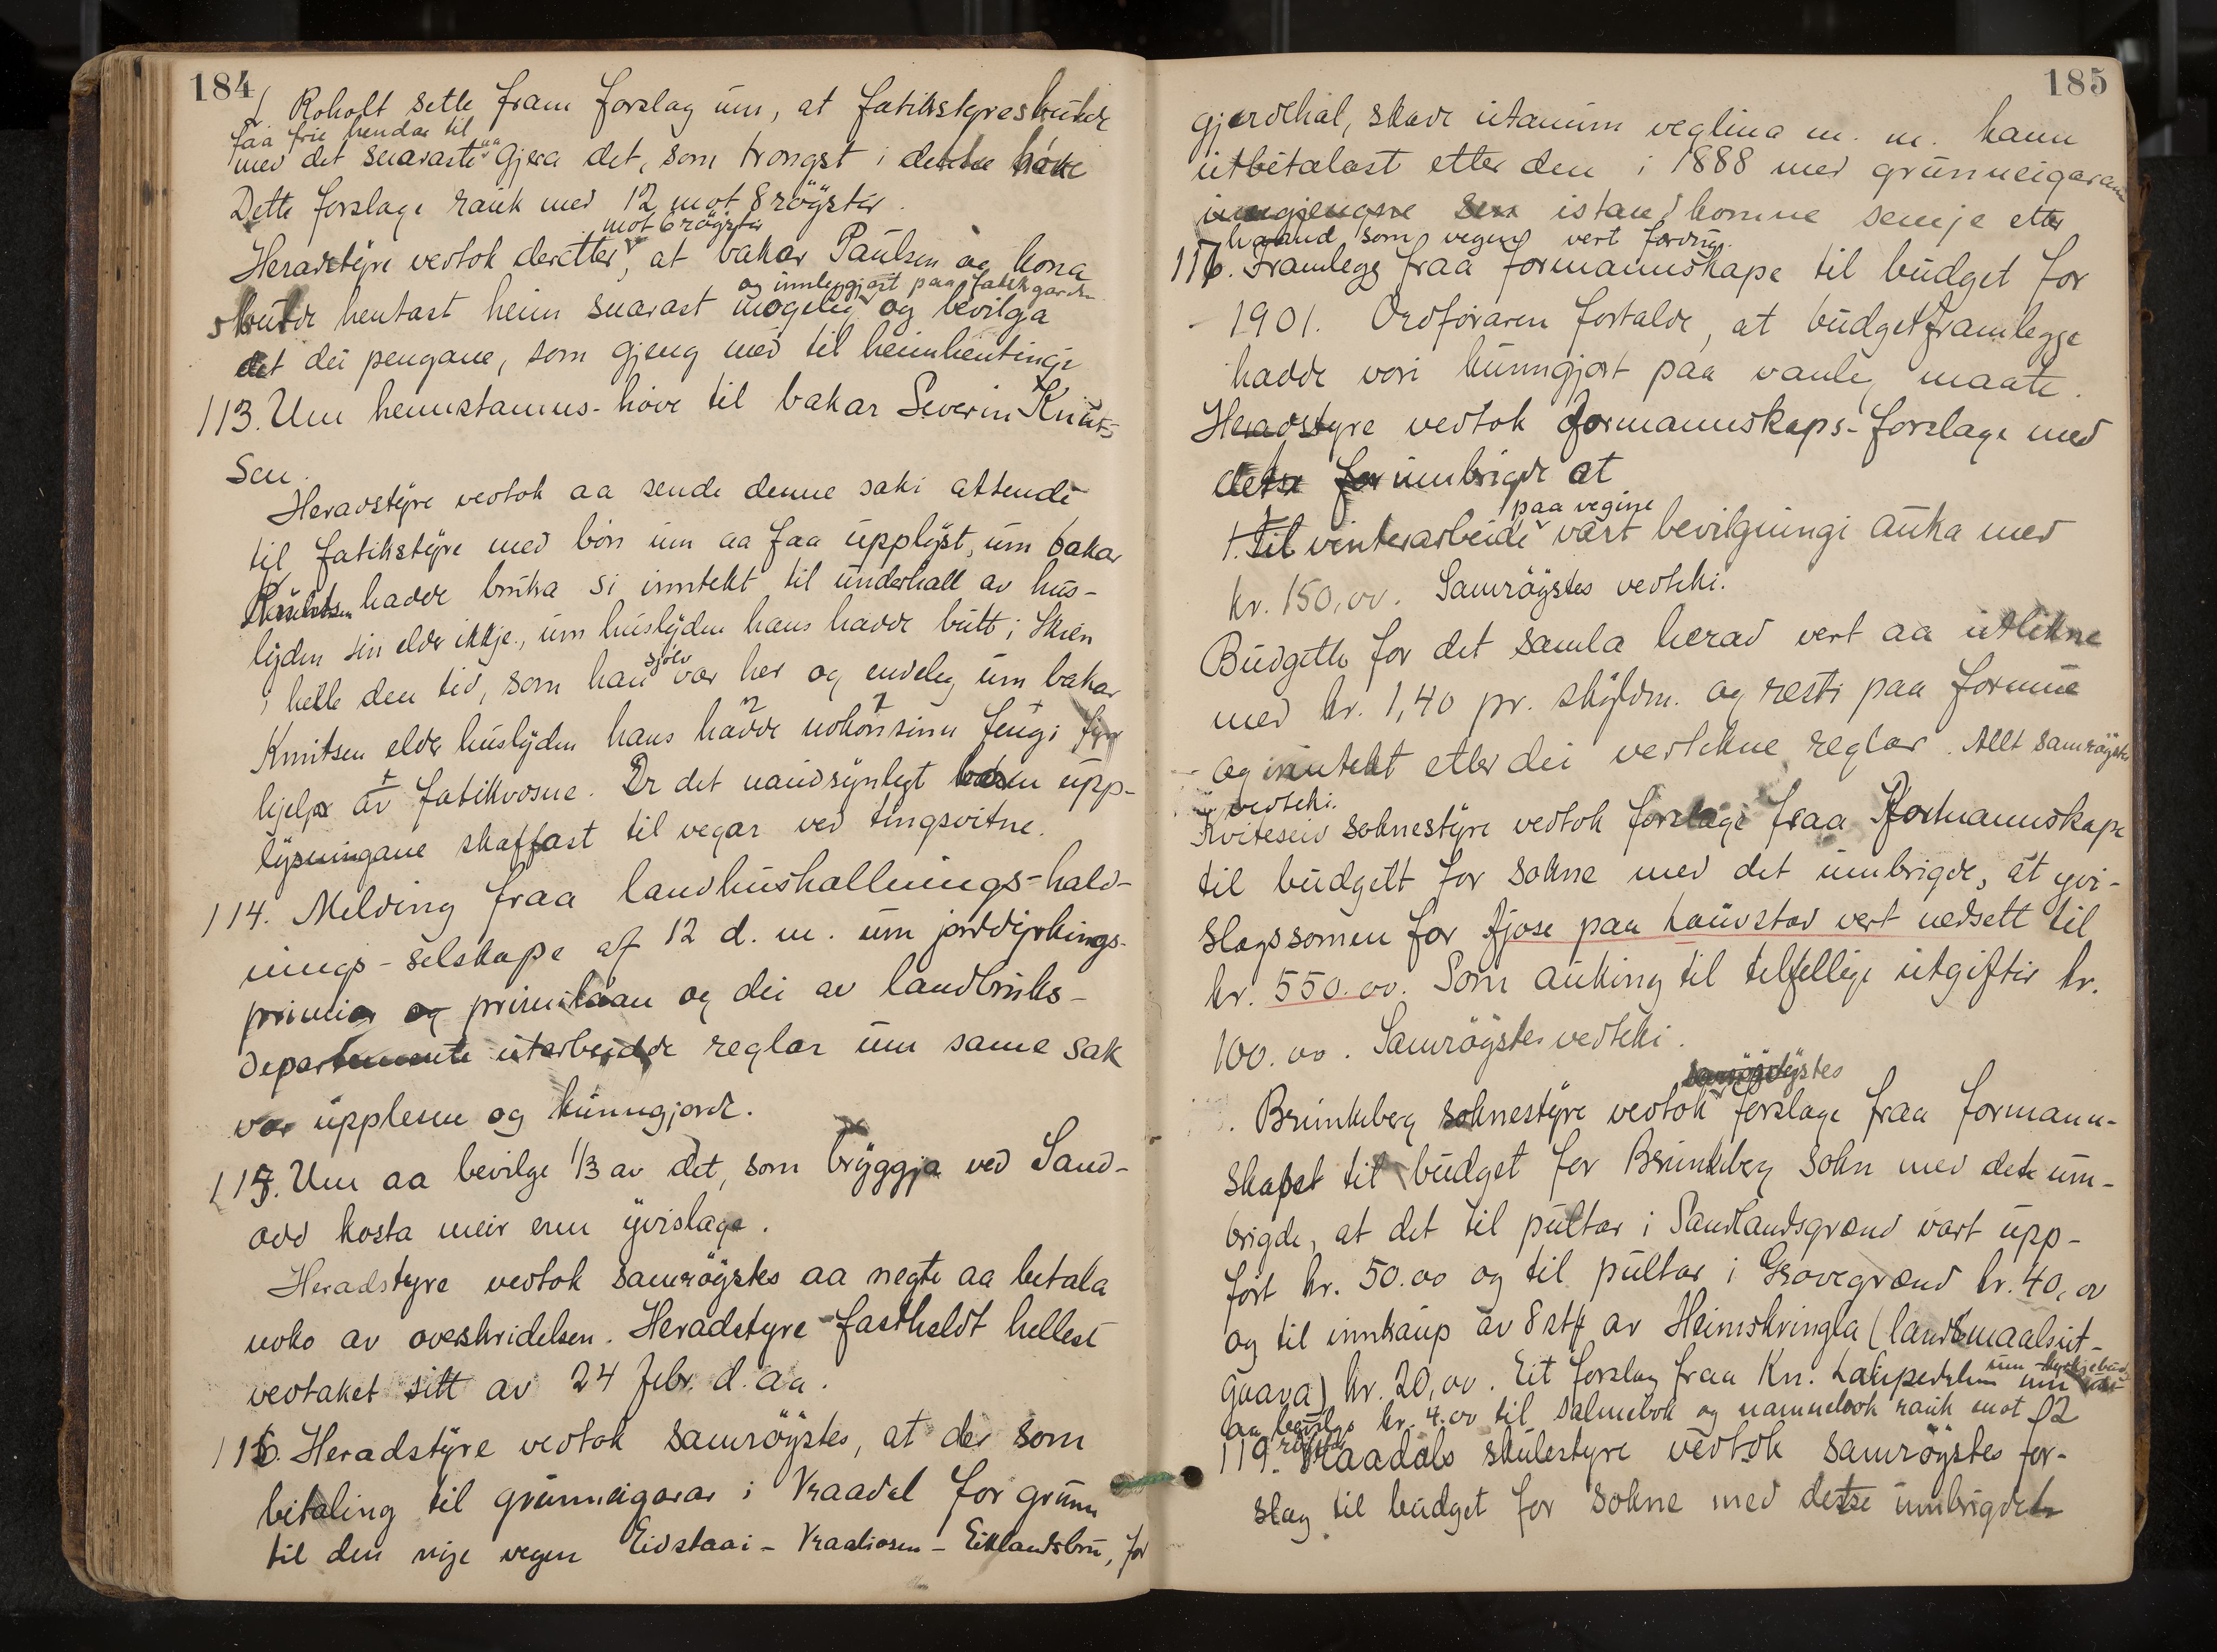 184
J. Roholt sette fram forslag um, at fatikstyreskulde
faa frie hendar til
med det snaraste aa gjera det, som trongst i dette høve
Dette forslage rauk med 12 mot 8 røyster.
mot 6 røyster
Heradstyre vedtok deretter, at bakar Paulsen og kona
og innleggjast paa fatikgarden
skulde hentast heim snarast mogeleg og bevilga
det dei pengane, som gjeng med til heimhentingi
113. Um heimstamns-høve til bakar Severin Knut-
sen.
Heradstyre vedtok aa sende denne saki attende
til fatikstyre med bøn um aa faa upplyst, um bakar
Knutsen hadde bruka si inntekt til underhald av hus-
lyden sin elder ikkje, um huslyden hans hadde butt i Skien
sjølv
i heile den tid, som han var her og endeleg um bakar
Knutsen elder huslyden hans hadde nokonsinn fengi fyrr
hjelp av fatikvosne. Er det naudsynlegt upp-
lysningane skaffast til vegar ved tingsvitne.
114. Melding fraa landhushallnings-hald-
nings-selskape af 12 d. m. um jorddyrkings-
primia og primilaan og dei av landbruks-
departemente utarbeidde reglar um same sak
var upplesne og kunngjorde.
115. Um aa bevilge 1/3 av det, som bryggja ved Sand-
odd kosta meir enn yvislage.
Heradstyre vedtok samrøystes aa negte aa betala
noko av oveskridelsen. Heradstyre fastheldt hellest
vedtaket sitt av 24 febr. d. aa.
116. Heradstyre vedtok samrøystes, at det som
betaling til grunneigarar i Vraadal for grunn
til den nye vegen Eidstaai - Vraaliosen - Eiklandsbru, for
185
gjerdehal, skade utanum veglina m. m. kann
utbetalast etter den i 1888 med grunneigarane
inngjengne istandkomne semje etter
haand som vegen vert ferdug.
117. Framlegg fraa formannskape til budget for
1901. Ordføraren fortalde, at budgetframlegge
hadde vori kunngjort paa vanleg maate.
Heradstyre vedtok formannskaps-forslage med
dette umbrigde at
paa vegine
1. Til vinterarbeide vart bevilgningi auka med
kr. 150,00. Samrøystes vedteki.
Budgette for det samla herad vert aa utlikne
med kr. 1,40 pr. skyldm. og resti paa formue
og inntekt etter dei vedtekne reglar. Allt samrøystes
vedteki.
Kviteseid soknestyre vedtok forslage fraa Formannskape
til budgett for sokne med det umbrigde, at yvi-
slagssomen for fjose paa Tauvstad vert nedsett til
kr. 550.00. Som auking til tilfellige utgifter kr.
100.00. Samrøystes vedteki.
samrøystes
Brunkeberg soknestyre vedtok forslage fraa formann-
skapet til budget for Brunkeberg sokn med dete um-
brigde, at det til pultar i Sandlandsgrænd vart upp-
ført kr. 50.00 og til pultar i Grovegrænd kr. 40,00
og til innkaup av 8 stk av Heimskringla (landsmaalsut-
gaava) kr. 20,00. Eit forslag fraa Kn. um
aa bevilge kr. 4.00 til salmebok og namnebok rauk mot 12
røyster
119. Vraadals skulestyre vedtok samrøystes for-
slag til budget for sokne med desse umbrigde